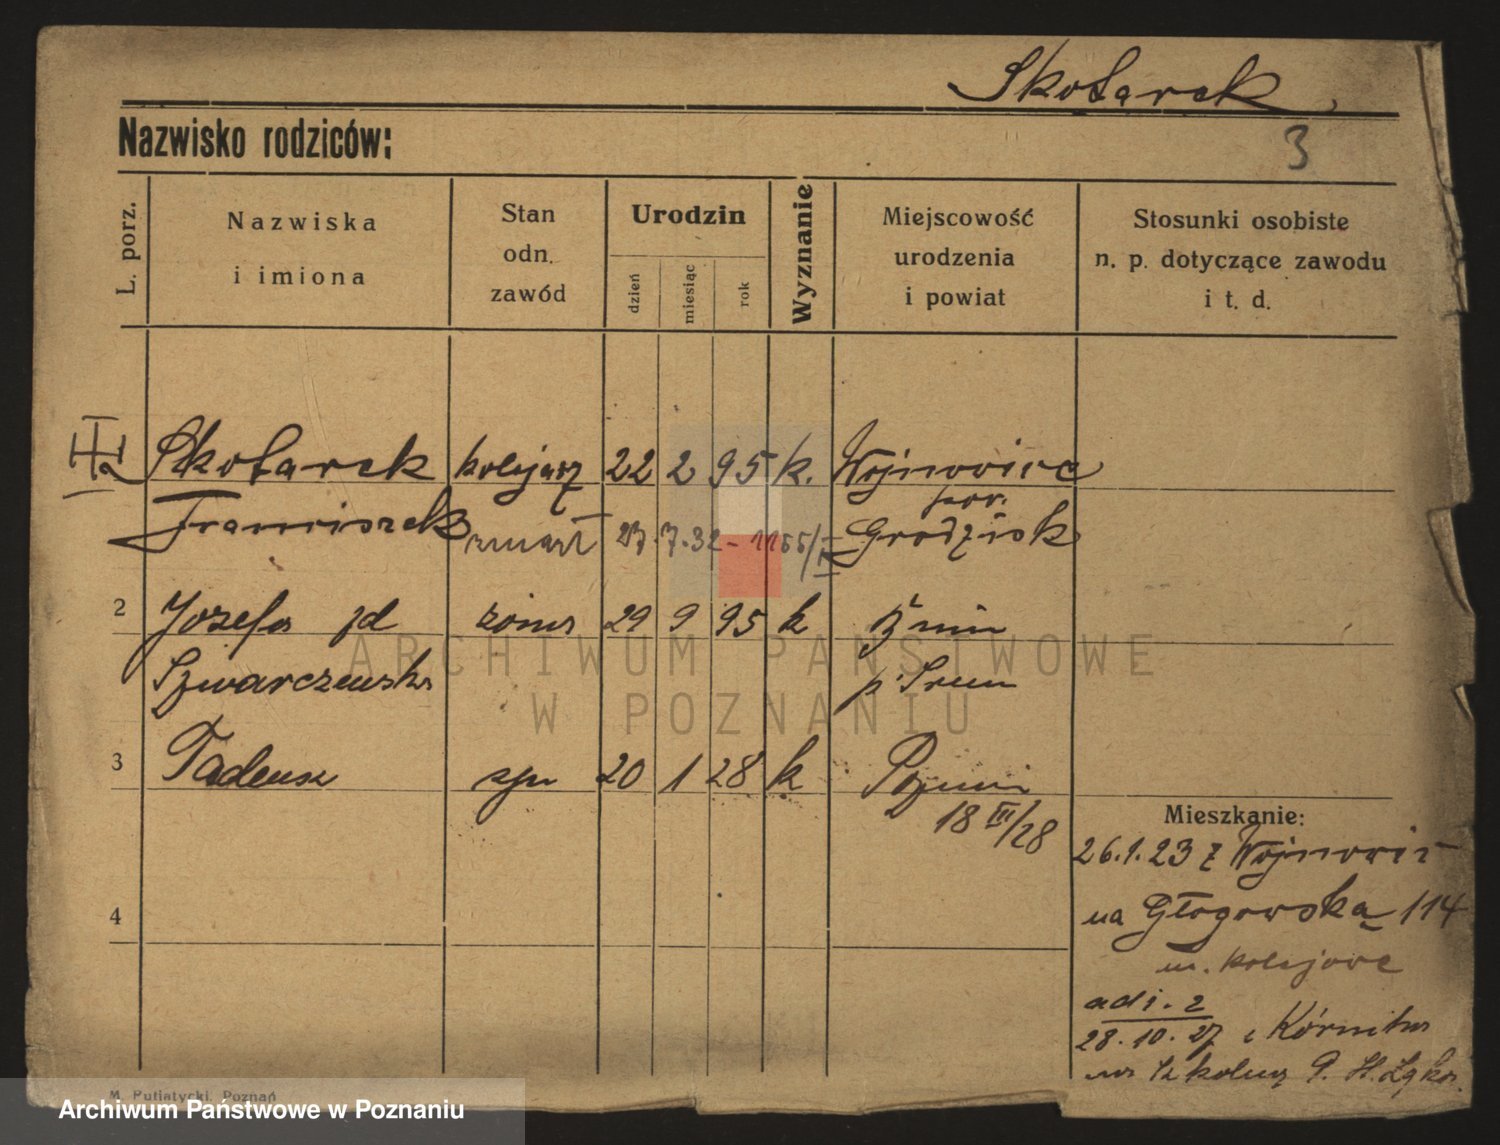 Skotarek
Nazwisko rodziców:
3
L. porz.
Nazwiska
i imiona
Stan
odn.
zawód
Urodzin
dzień
miesiąc
rok
Wyznanie
Miejscowość
urodzenia
i powiat
Stosunki osobiste
n. p. dotyczące zawodu
i t. d.
Skotarek kolejarz 22 2 95 k. Wojnowice
pow.
Franciszek zmarł 27.7.32 - 1155/I Grodzisk
2 Józefa zd żona 29 9 95 k Żnin
Szwarczewska p. Śrem
3 Tadeusz syn 20 1 28 k Poznań
18 III/28
4
Mieszkanie:
26.1.23 z Wojnowic
na Głogowska 114
m. kolejowe
adi. 2
28.10.27 z Kórnika
na
ARCHIWUM PAŃSTWOWE
W POZNANIU
M. Putiatycki, Poznań
Archiwum Państwowe w Poznaniu